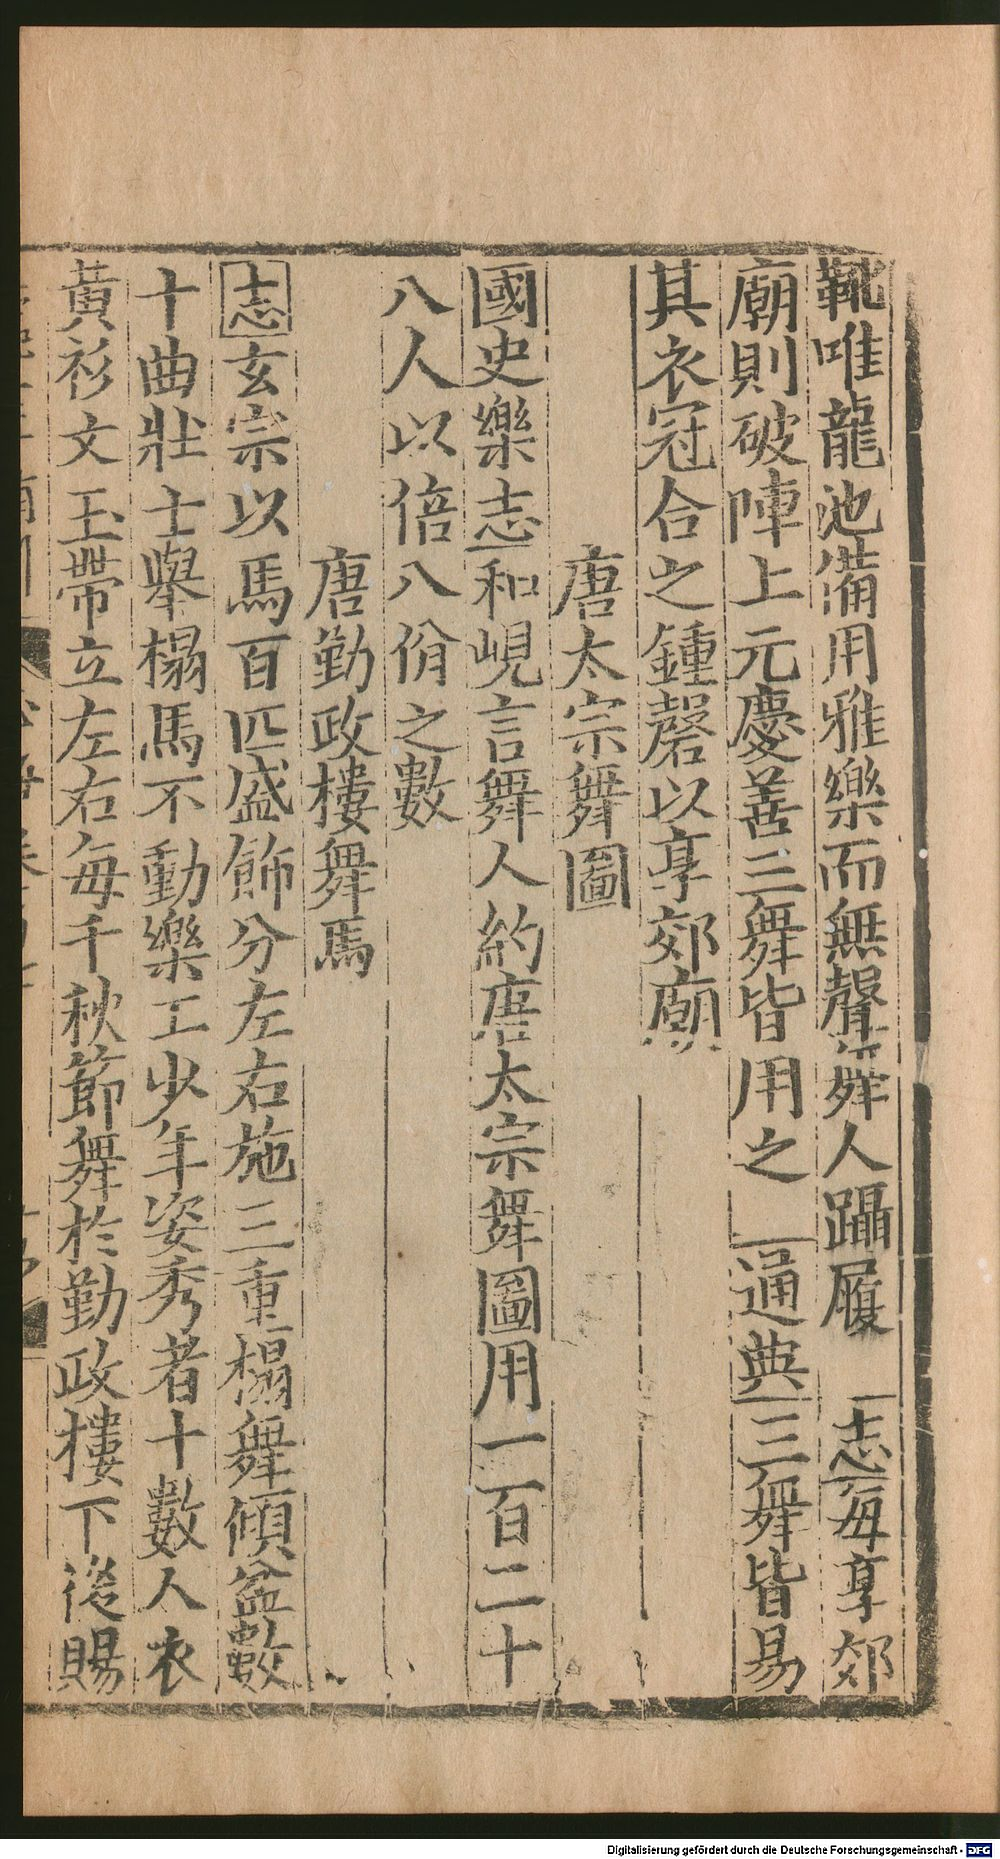 靴唯龍池備用雅樂而無聲舞人躡履 志每享郊
廟則破陣上元慶善三舞皆用之 通典三舞皆易
其衣冠合之鍾磬以享郊廟
唐太宗舞圖
國史樂志和峴言舞人約唐太宗舞圖用一百二十
八人以倍八佾之數
唐勤政樓舞馬
志玄宗以馬百匹盛飾分左右施三重榻舞傾盆數
十曲壯士舉榻馬不動樂工少年姿秀者十數人衣
黃衫文玉帶立左右每千秋節舞於勤政樓下後賜
Digitalisierung gefördert durch die Deutsche Forschungsgemeinschaft - DFG